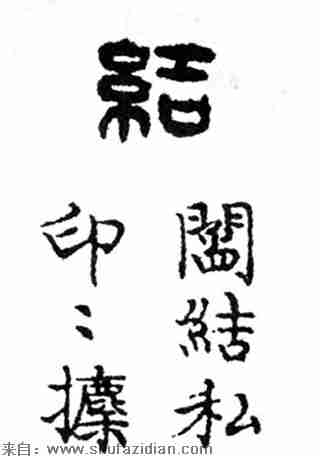 結
闔結私
印〻攈
来自：www.shufazidian.com